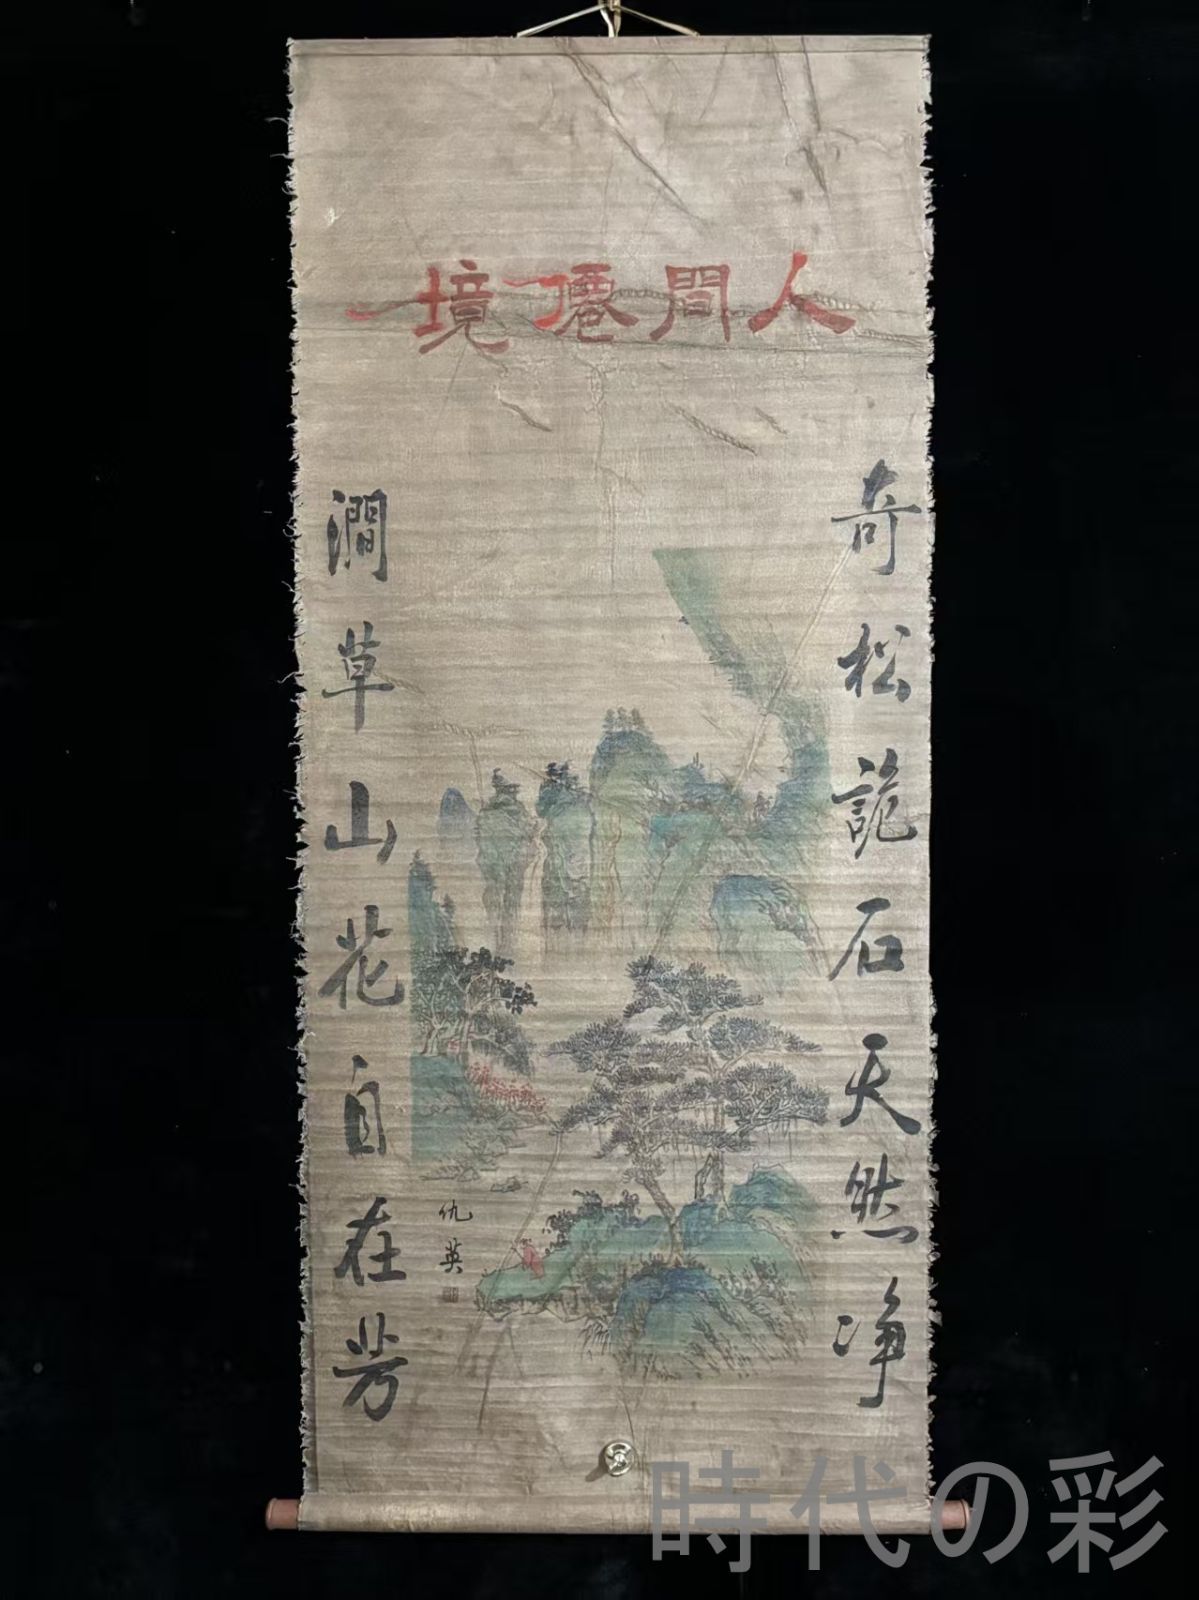 人間僊境
奇松詭石天然净
澗草山花自在芳
仇英
時代の彩